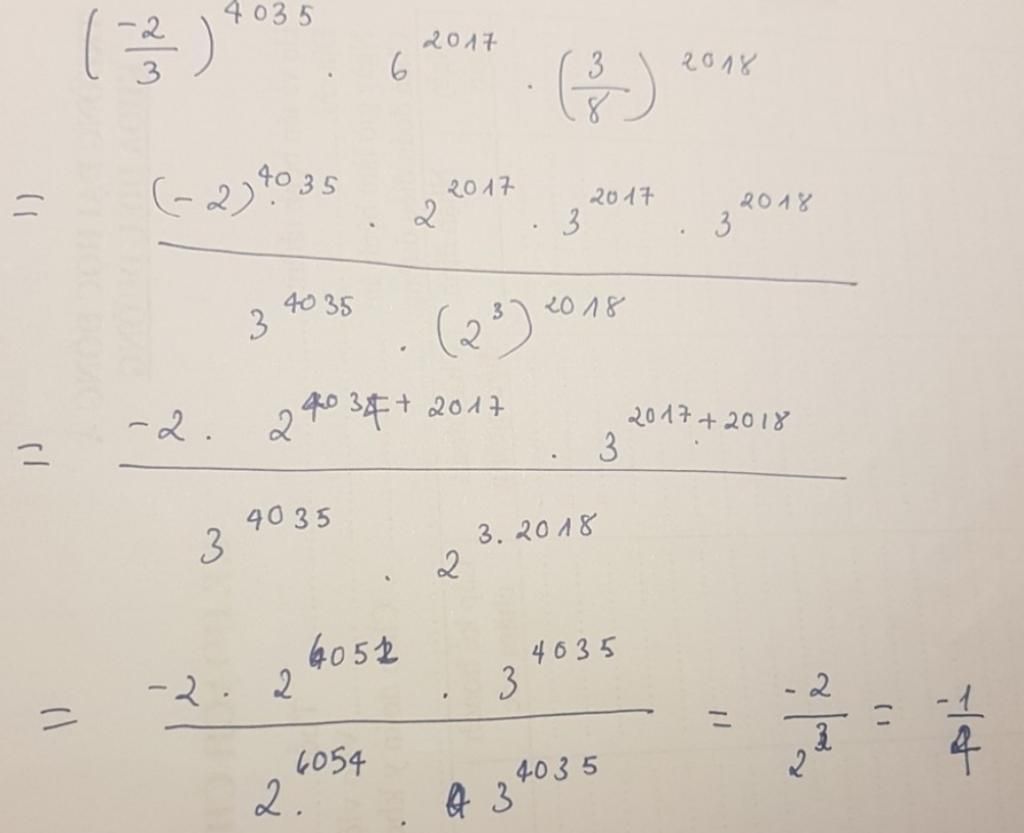 (-2/3)^4035 . 6^2017 . (3/8)^2018
= ((-2)^4035 . 2^2017 . 3^2017 . 3^2018) / (3^4035 . (2^3)^2018)
= (-2 . 2^(4034 + 2017) . 3^(2017 + 2018)) / (3^4035 . 2^(3.2018))
= (-2 . 2^6051 . 3^4035) / (2^6054 . 3^4035) = -2/2^3 = -1/4